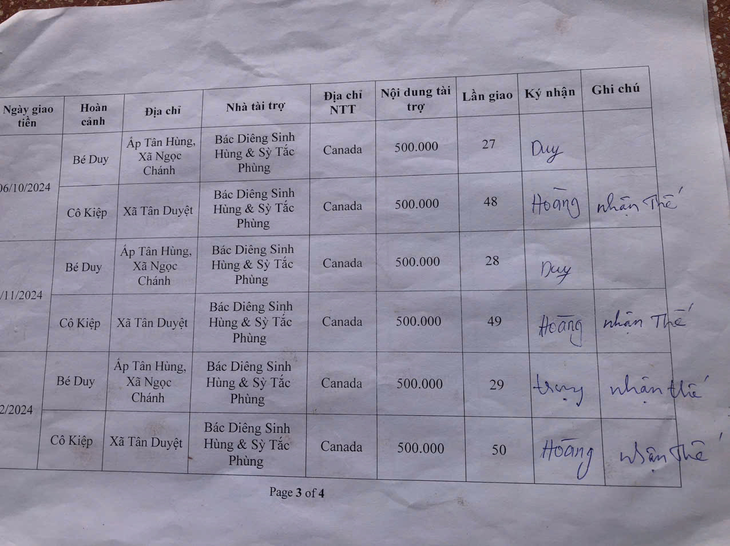 Ngày giao tiền | Hoàn cảnh | Địa chỉ | Nhà tài trợ | Địa chỉ NTT | Nội dung tài trợ | Lần giao | Ký nhận | Ghi chú
06/10/2024 | Bé Duy | Ấp Tân Hùng, Xã Ngọc Chánh | Bác Diêng Sinh Hùng & Sỳ Tắc Phùng | Canada | 500.000 | 27 | Duy
Cô Kiệp | Xã Tân Duyệt | Bác Diêng Sinh Hùng & Sỳ Tắc Phùng | Canada | 500.000 | 48 | Hoàng | nhận Thế
/11/2024 | Bé Duy | Ấp Tân Hùng, Xã Ngọc Chánh | Bác Diêng Sinh Hùng & Sỳ Tắc Phùng | Canada | 500.000 | 28 | Duy
Cô Kiệp | Xã Tân Duyệt | Bác Diêng Sinh Hùng & Sỳ Tắc Phùng | Canada | 500.000 | 49 | Hoàng | nhận Thế
2/2024 | Bé Duy | Ấp Tân Hùng, Xã Ngọc Chánh | Bác Diêng Sinh Hùng & Sỳ Tắc Phùng | Canada | 500.000 | 29 | nhận thế
Cô Kiệp | Xã Tân Duyệt | Bác Diêng Sinh Hùng & Sỳ Tắc Phùng | Canada | 500.000 | 50 | Hoàng | nhận Thế
Page 3 of 4